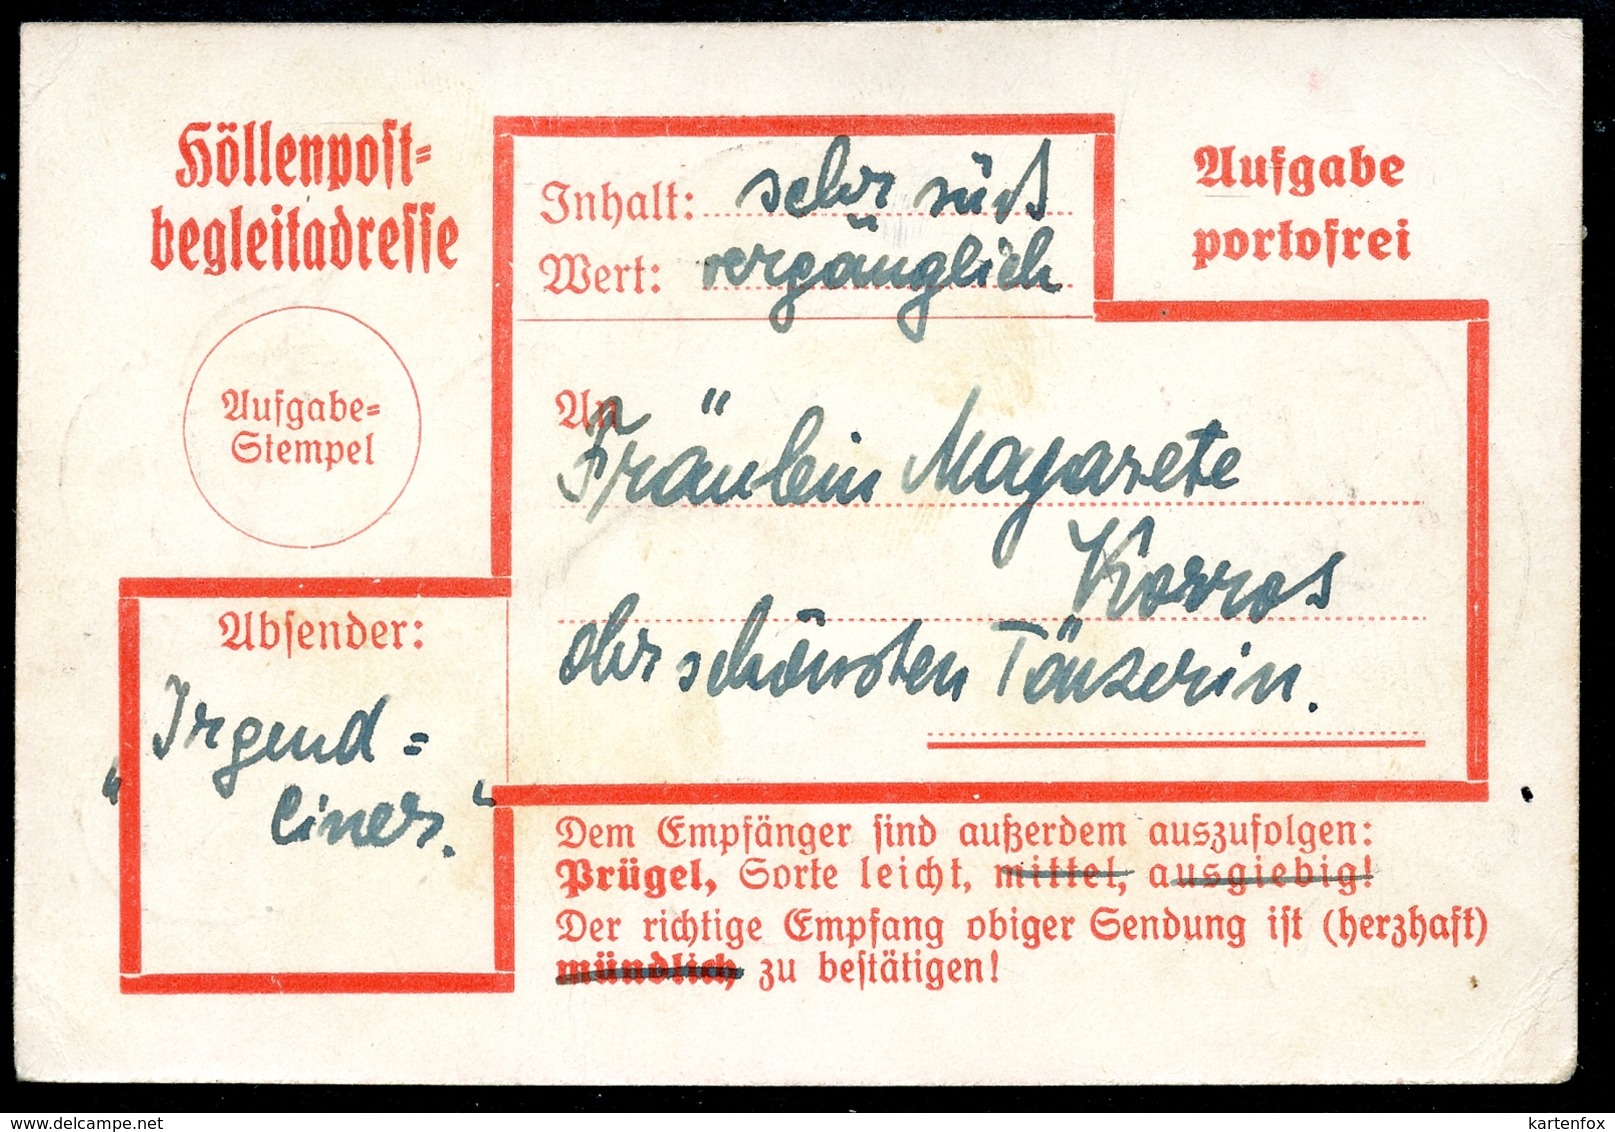 Höllenpost-
begleitadresse
Inhalt: sehr süß
Wert: vergänglich
Aufgabe
portofrei
Aufgabe-
Stempel
An
Fräulein Magarete
Korros
der schönsten Tänzerin.
Absender:
"Irgend=
einer."
Dem Empfänger sind außerdem auszufolgen:
Prügel, Sorte leicht, mittel, ausgiebig!
Der richtige Empfang obiger Sendung ist (herzhaft)
mündlich zu bestätigen!
www.delcampe.net
kartenfox